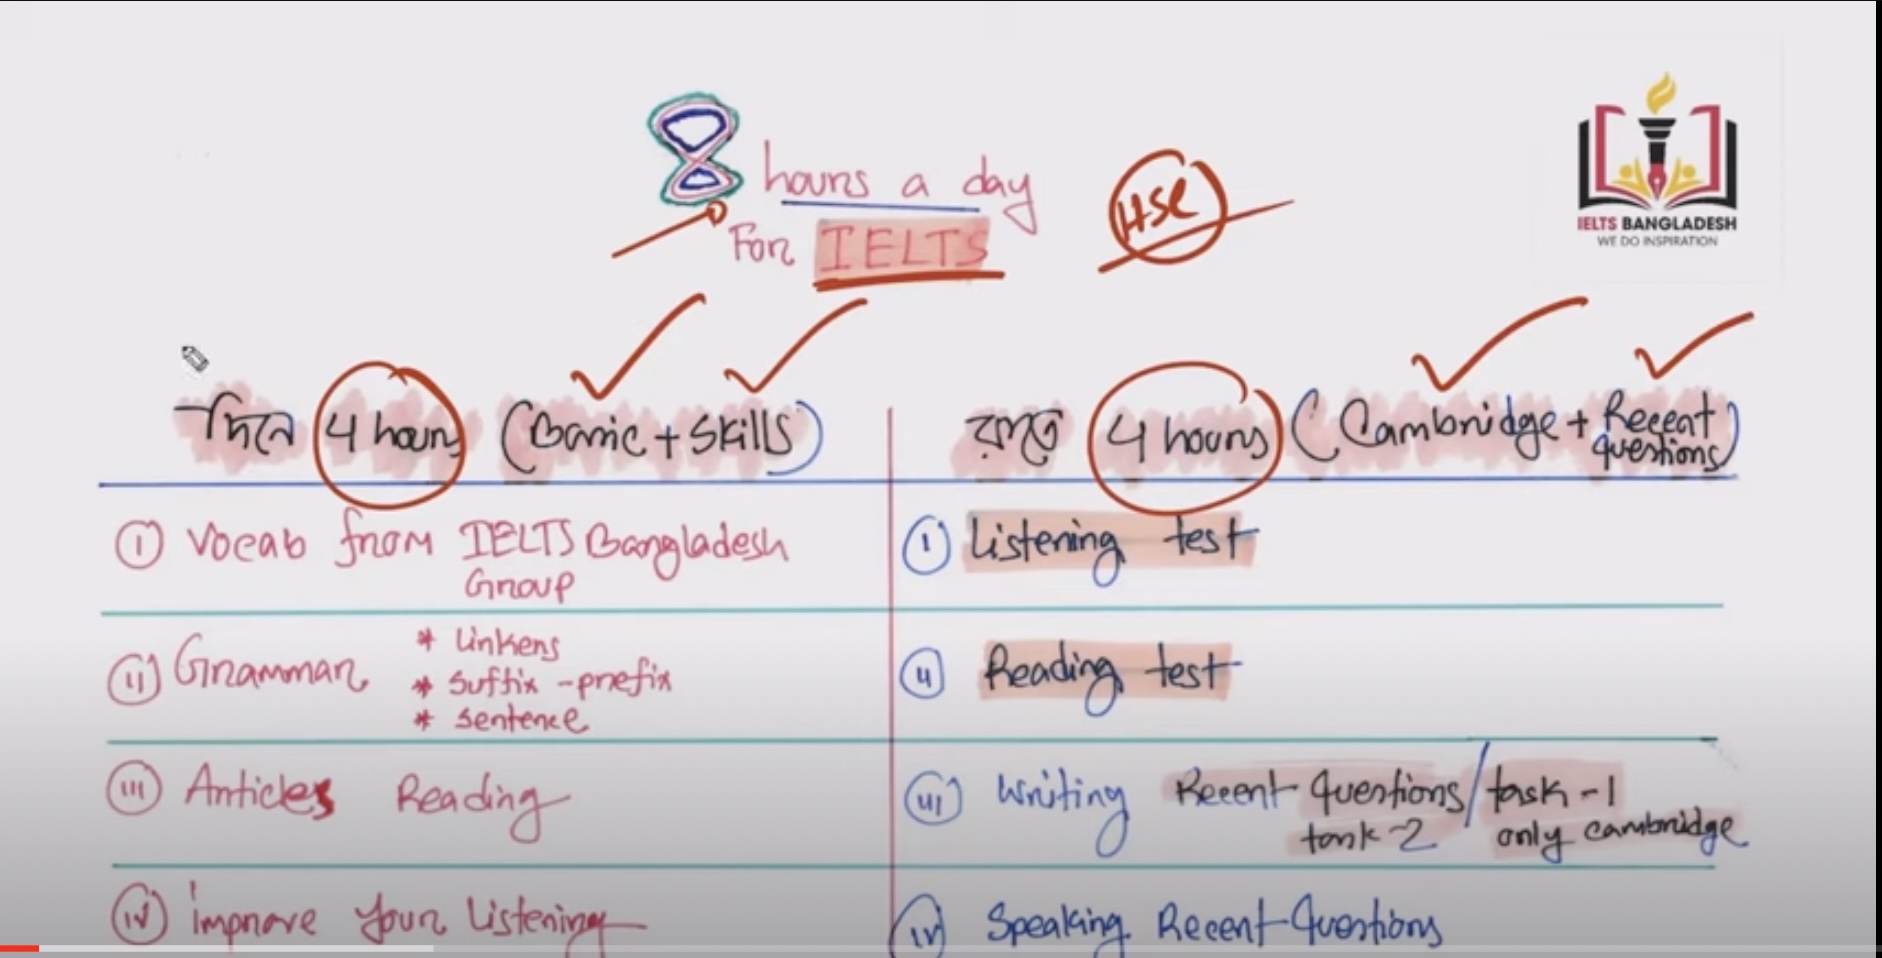 8 hours a day
For IELTS
HSC
IELTS BANGLADESH
WE DO INSPIRATION
দিনে 4 hours (Basic + Skills)
রাতে 4 hours (Cambridge + Recent questions)
① Vocab from IELTS Bangladesh
Group
② Grammar
* Linkers
* Suffix - prefix
* Sentence
③ Articles Reading
④ improve your Listening
① Listening test
② Reading test
③ Writing Recent Questions / task - 1
task - 2 only cambridge
④ Speaking Recent Questions